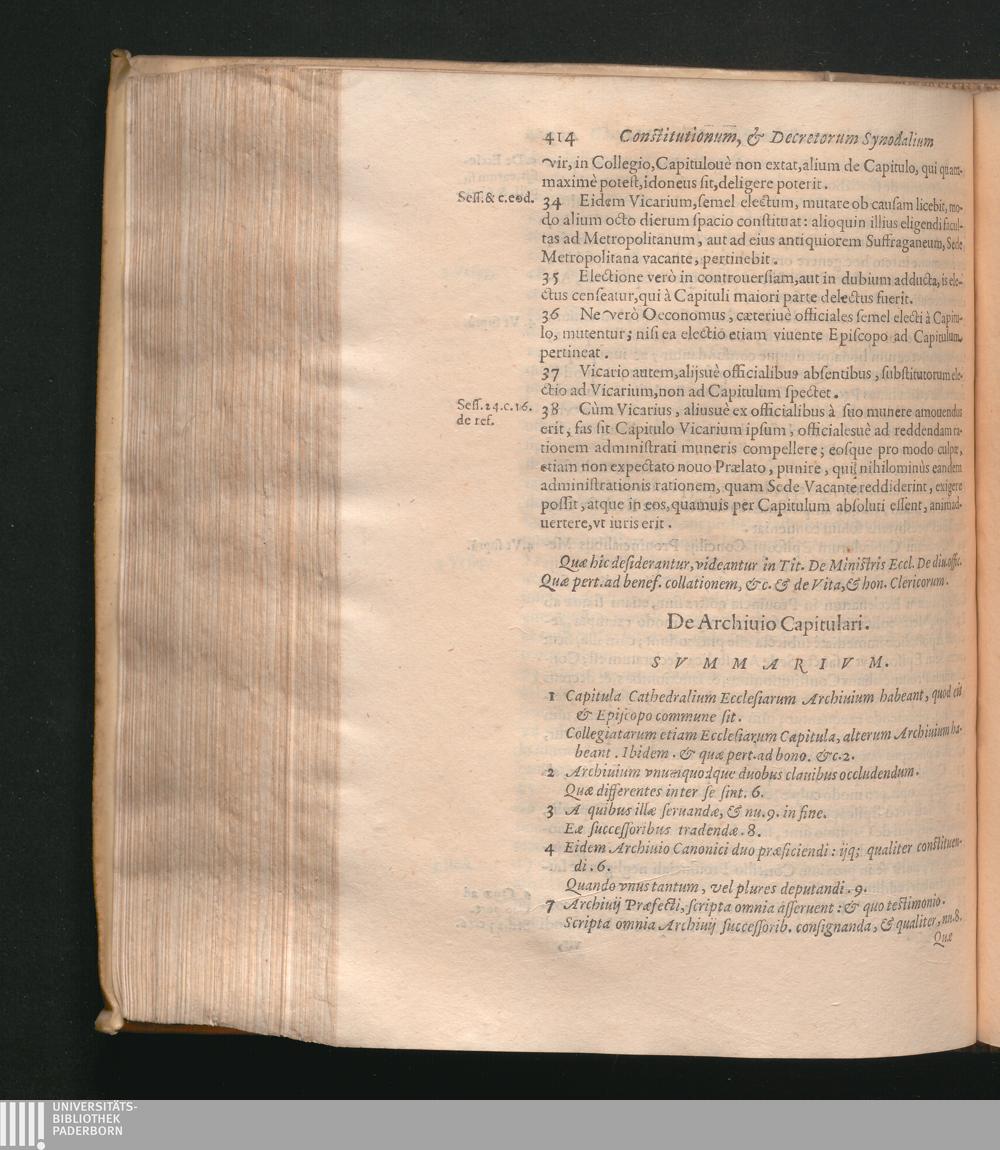 414 Constitutionum, & Decretorum Synodalium
vir, in Collegio, Capitulouè non extat, alium de Capitulo, qui quam-
maximè potest, idoneus sit, deligere poterit.
Sess. & c. eod.
34 Eidem Vicarium, semel electum, mutare ob causam licebit, mo-
do alium octo dierum spacio constituat: alioquin illius eligendi facul-
tas ad Metropolitanum, aut ad eius antiquiorem Suffraganeum, Sede
Metropolitana vacante, pertinebit.
35 Electione verò in controuersiam, aut in dubium adducta, is ele-
ctus censeatur, qui à Capituli maiori parte delectus fuerit.
36 Ne verò Oeconomus, cæteriuè officiales semel electi à Capitu-
lo, mutentur; nisi ea electio etiam viuente Episcopo ad Capitulum
pertineat.
37 Vicario autem, alijsuè officialibus absentibus, substitutorum ele-
ctio ad Vicarium, non ad Capitulum spectet.
Sess. 24. c. 16.
de ref.
38 Cùm Vicarius, aliusuè ex officialibus à suo munere amouendus
erit, fas sit Capitulo Vicarium ipsum, officialesuè ad reddendam ra-
tionem administrati muneris compellere; eosque pro modo culpæ,
etiam non expectato nouo Prælato, punire, qui nihilominùs eandem
administrationis rationem, quam Sede Vacante reddiderint, exigere
possit, atque in eos, quamuis per Capitulum absoluti essent, animad-
uertere, vt iuris erit.
Quæ hic desiderantur, videantur in Tit. De Ministris Eccl. De diu. offic.
Quæ pert. ad benef. collationem, &c. & de Vita, & hon. Clericorum.
De Archiuio Capitulari.
SVMMARIVM.
1 Capitula Cathedralium Ecclesiarum Archiuium habeant, quod eis
& Episcopo commune sit.
Collegiatarum etiam Ecclesiarum Capitula, alterum Archiuium ha-
beant. Ibidem. & quæ pert. ad bono. &c. 2.
2 Archiuium vnumquodque duobus clauibus occludendum.
Quæ differentes inter se sint. 6.
3 A quibus illæ seruandæ, & nu. 9. in fine.
Eæ successoribus tradendæ. 8.
4 Eidem Archiuio Canonici duo præficiendi: ijq; qualiter constituen-
di. 6.
Quando vnus tantum, vel plures deputandi. 9.
7 Archiuij Præfecti, scripta omnia asseruent: & quo testimonio.
Scripta omnia Archiuij successorib. consignanda, & qualiter, nu. 8.
Quæ
UNIVERSITÄTS-
BIBLIOTHEK
PADERBORN